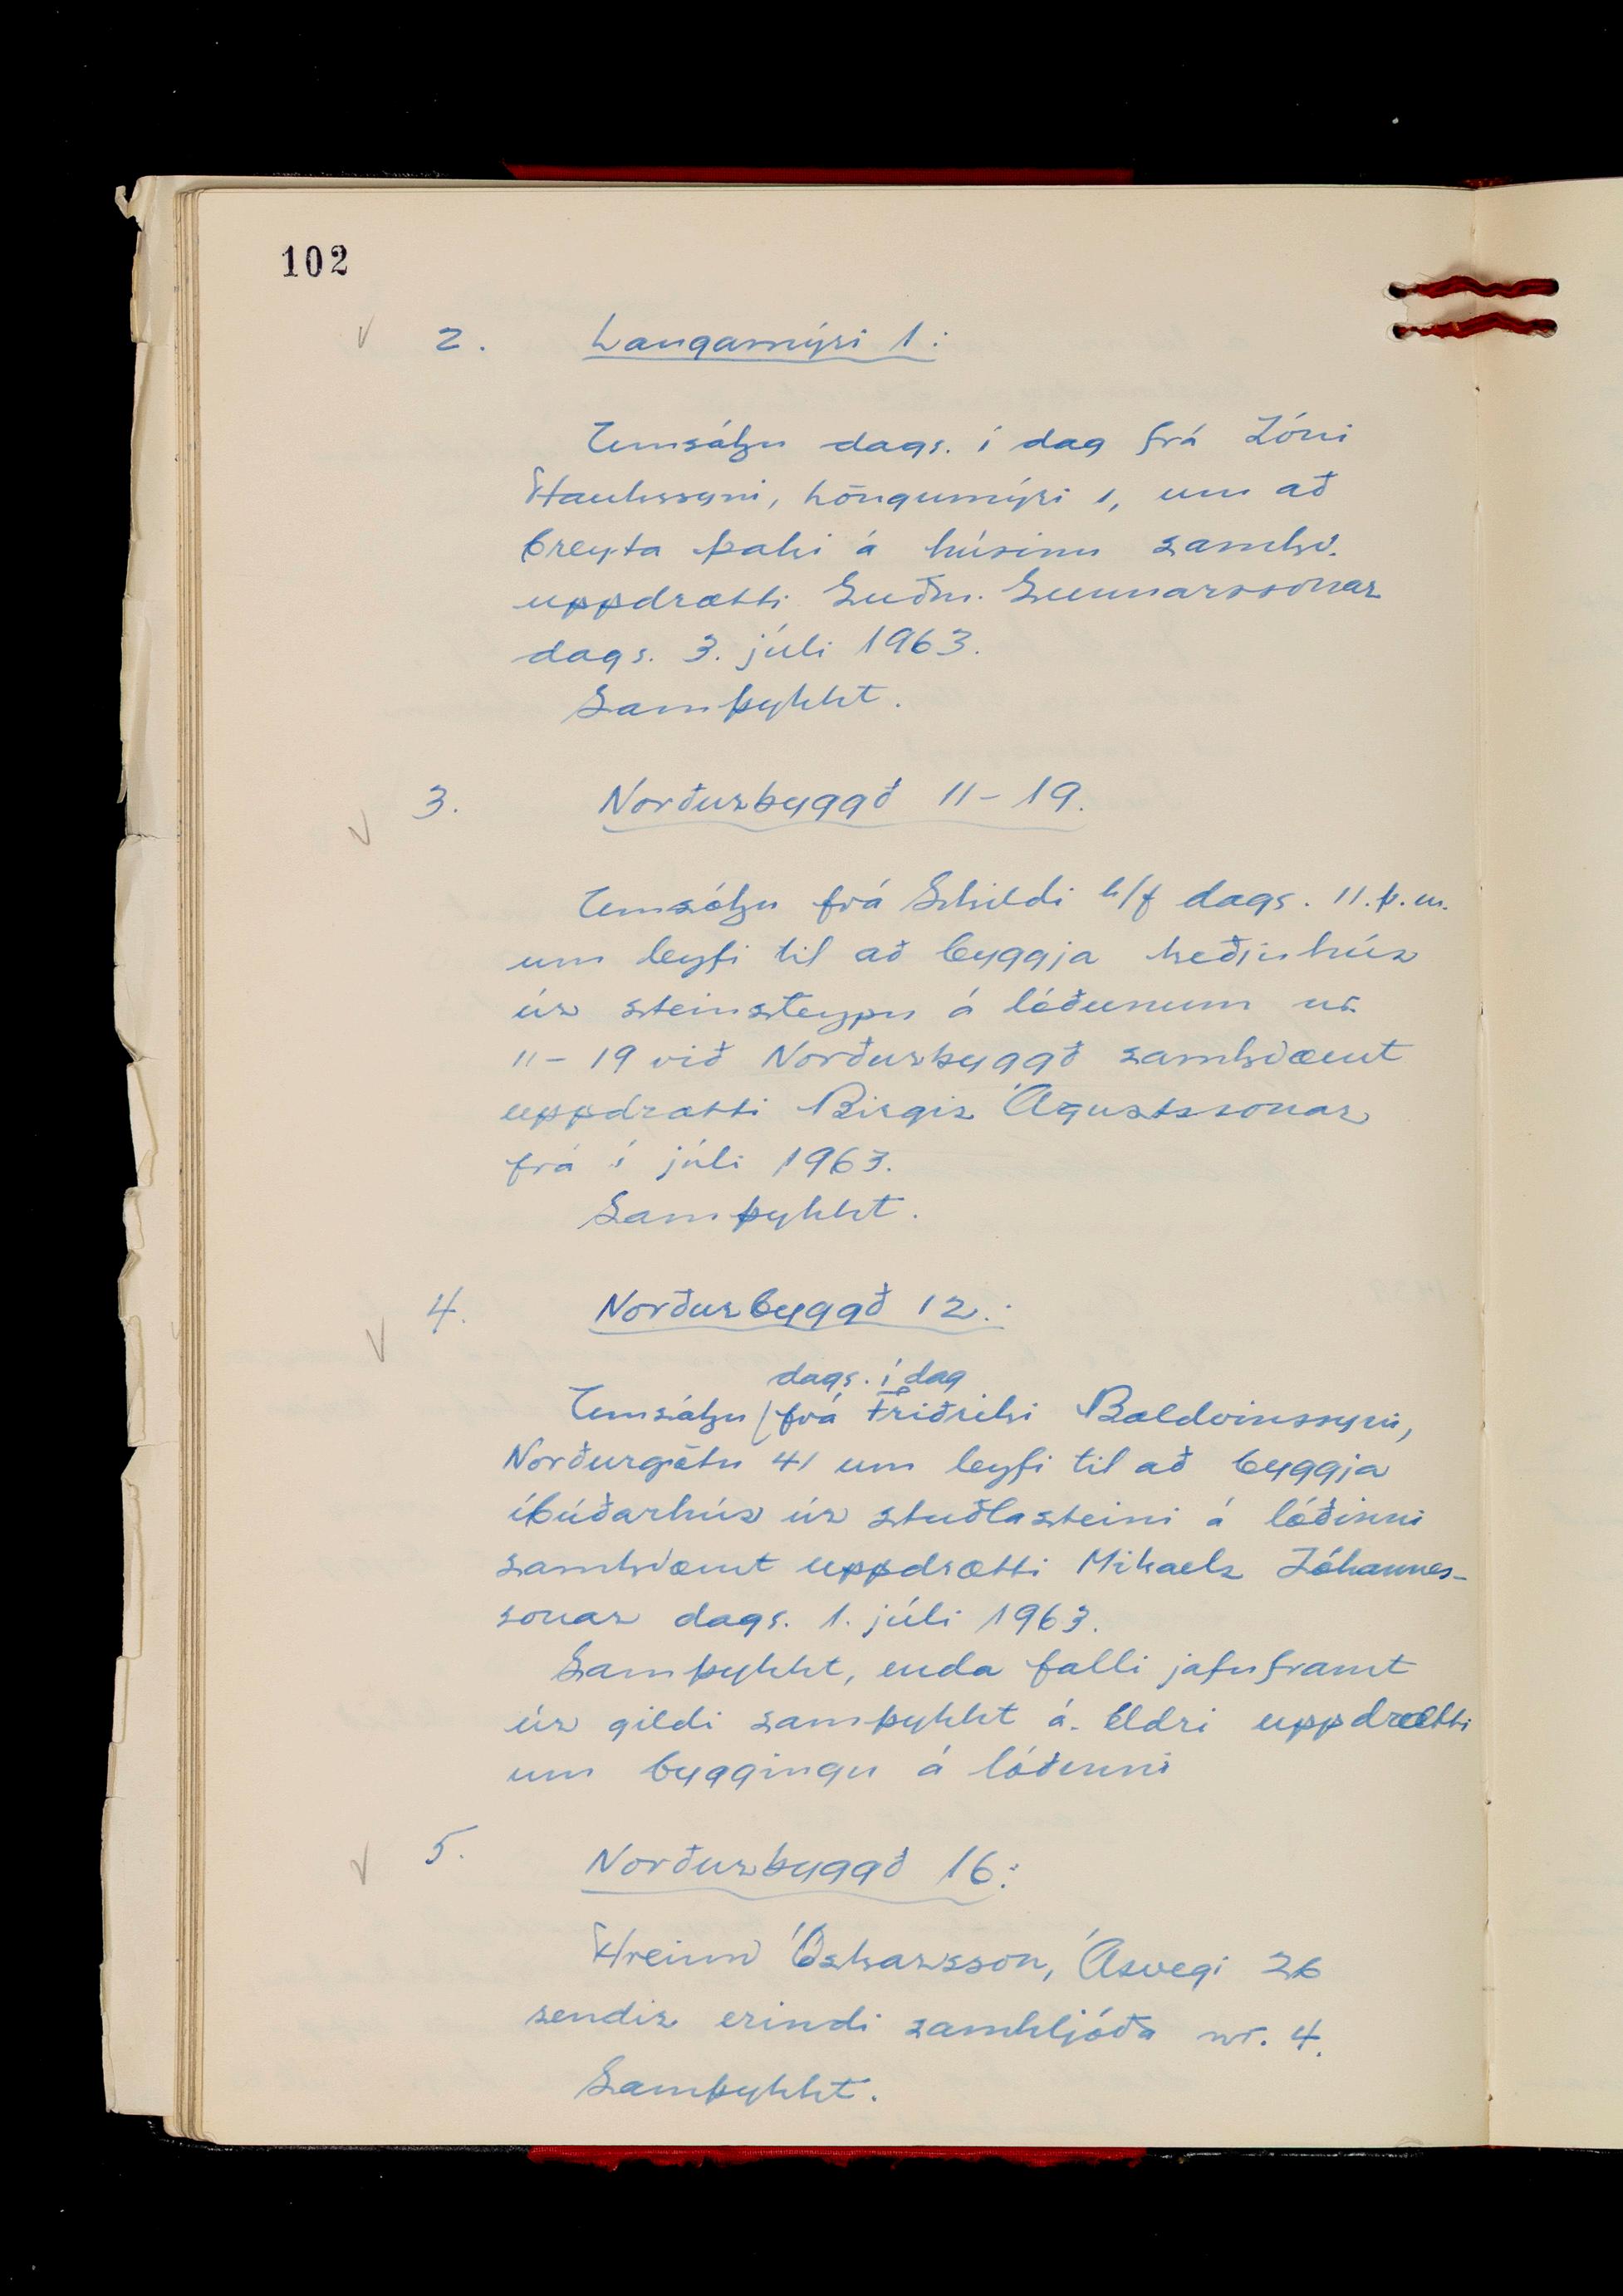 102
2. Langamýri 1:
Umsókn dags. í dag frá Jóni
Haukssyni, Löngumýri 1, um að
breyta þaki á húsinu samkv.
uppdrætti Guðm. Gunnarssonar
dags. 3. júlí 1963.
Samþykkt.
3. Norðurbyggð 11-19.
Umsókn frá Skildi h/f dags. 11. þ.m.
um leyfi til að byggja keðjuhús
úr steinsteypu á lóðunum nr.
11-19 við Norðurbyggð samkvæmt
uppdrætti Birgis Ágústssonar
frá í júlí 1963.
Samþykkt.
4. Norðurbyggð 12:
dags. í dag
Umsókn frá Friðriki Baldvinssyni,
Norðurgötu 41 um leyfi til að byggja
íbúðarhús úr stuðlasteini á lóðinni
samkvæmt uppdrætti Mikaels Jóhannes-
sonar dags. 1. júlí 1963.
Samþykkt, enda falli jafnframt
úr gildi samþykkt á eldri uppdrætti
um byggingu á lóðinni
5. Norðurbyggð 16:
Hreinn Óskarsson, Ásvegi 26
sendir erindi samhljóða nr. 4.
Samþykkt.